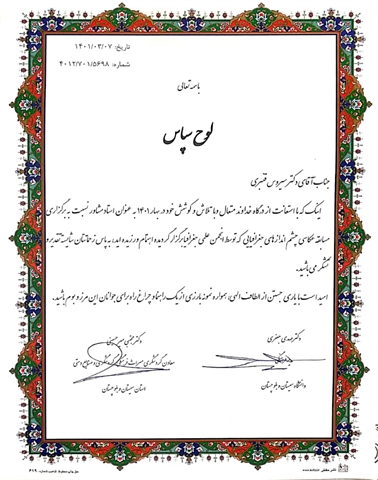 تاریخ: ۱۴۰۱/۰۳/۰۷
شماره: ۴۰۱۲/۷۰۱/۵۶۹۸
باسمه تعالی
لوح سپاس
جناب آقای دکتر سیروس قنبری
اینک که با استعانت از درگاه خداوند متعال و با تلاش و کوشش خود در بهار ۱۴۰۱ به عنوان استاد مشاور نسبت به برگزاری
مسابقه عکاسی چشم اندازهای جغرافیایی که توسط انجمن علمی جغرافیا برگزار گردیده اهتمام ورزیده اید، به پاس زحماتتان شایسته تقدیر و
تشکر می باشید.
امید است با یاری جستن از الطاف الهی، همواره نمونه بارزی از یک راهنما و چراغ راه برای جوانان این مرز و بوم باشید.
دکتر مهدی جعفری
دانشگاه سیستان و بلوچستان
دکتر مجتبی میرحسینی
معاون گردشگری میراث فرهنگی، گردشگری و صنایع دستی
استان سیستان و بلوچستان